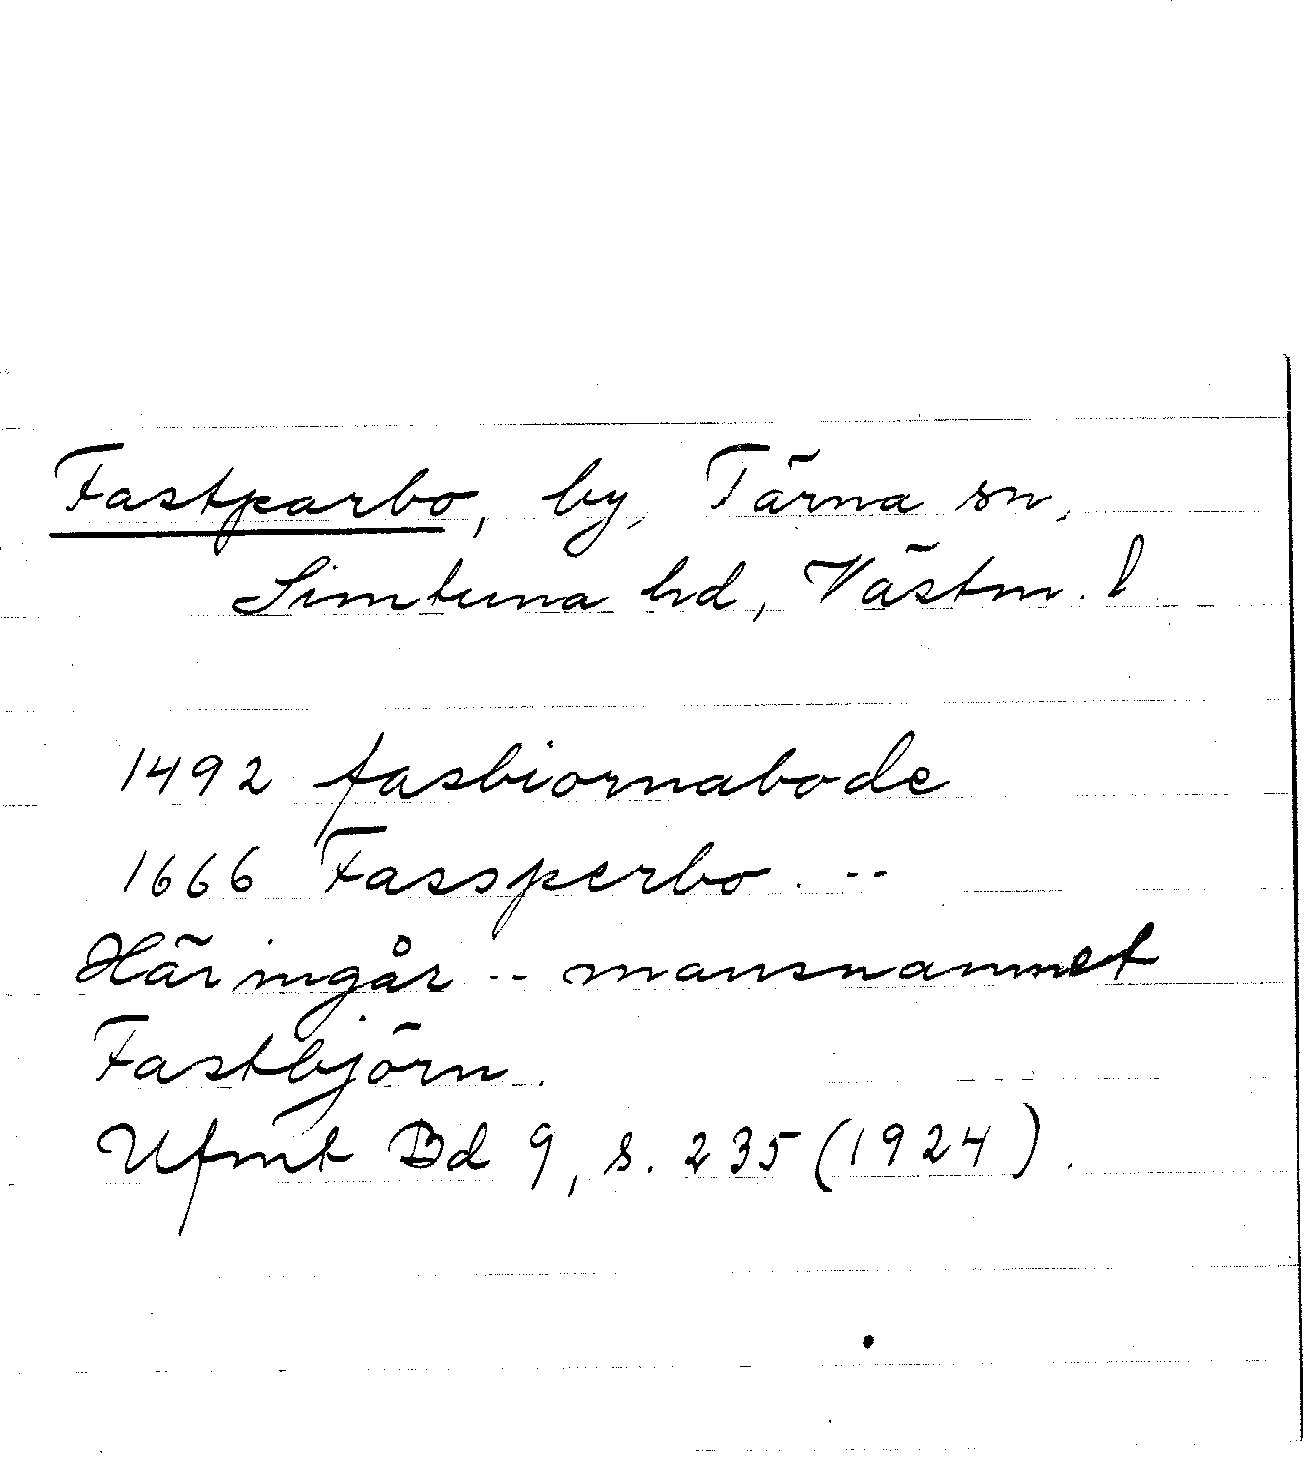 Fastparbo, by, Tärna sn,
Simtuna hd, Västm. l
1492 fasbiornabode
1666 Fassperbo. --
Här ingår -- mansnammet
Fastbjörn.
Ufmt Bd 9, s. 235 (1924).